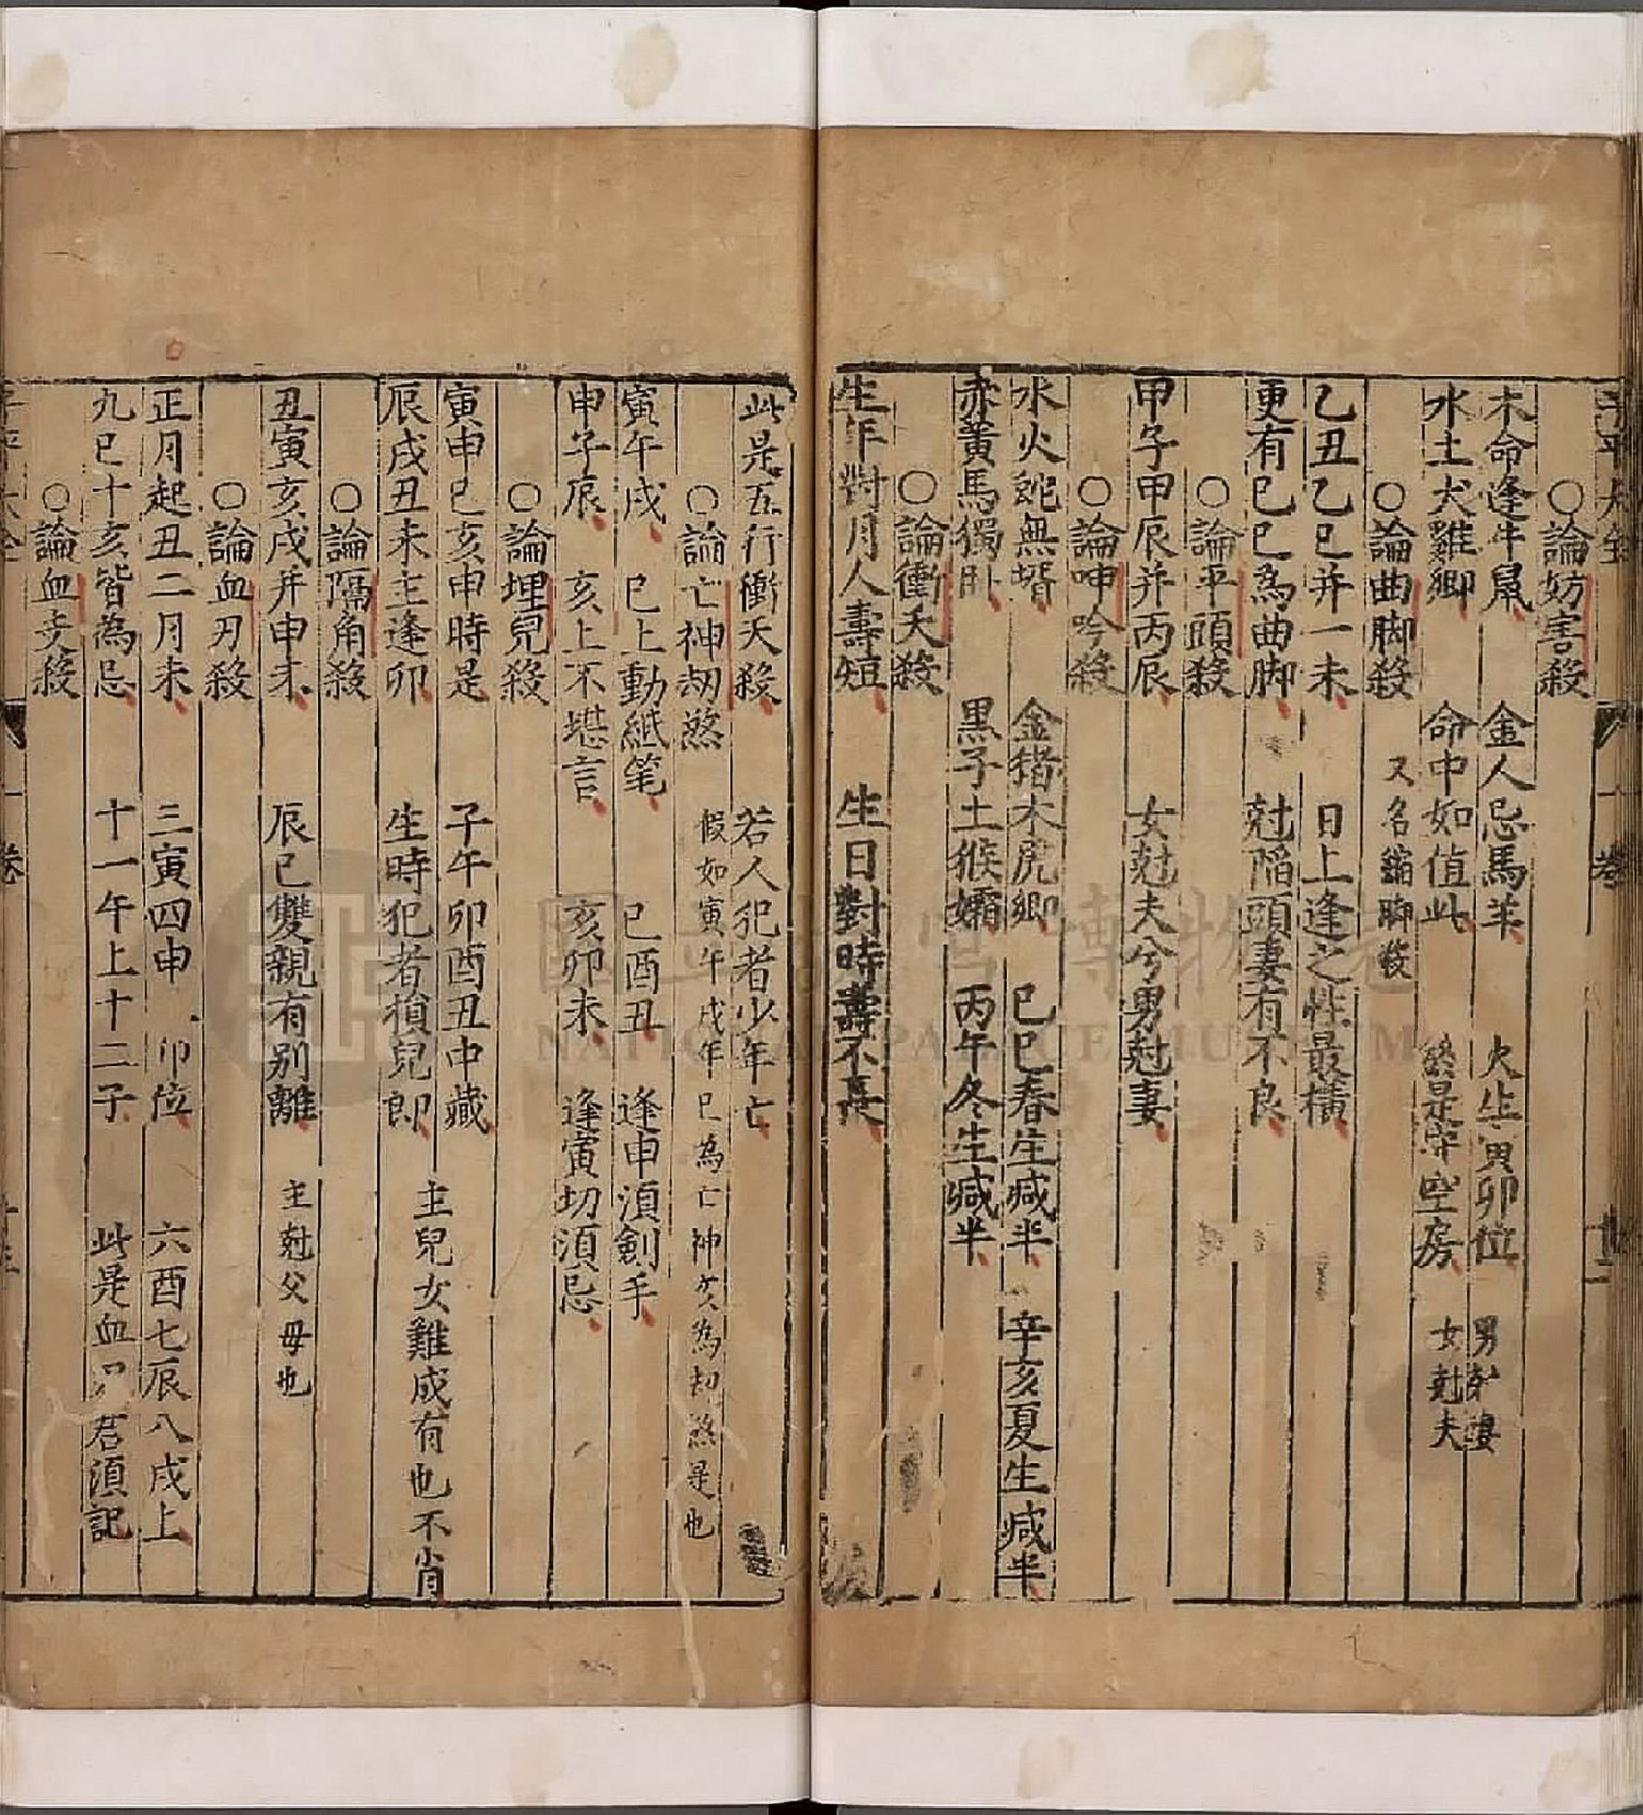 ○論妨害殺
木命逢牛鼠　金人忌馬羊　火生寅卯位　男尅妻
水土犬雞卿　命中如值此　必是守空房　女尅夫
○論曲脚殺　又名縮脚殺
乙丑乙巳并一未　日上逢之性最橫
更有己巳為曲脚　尅陷頭妻有不良
○論平頭殺
甲子甲辰并丙辰　女尅夫兮男尅妻
○論呻吟殺
水火蛇無壻　金猪木虎卿　己巳春生减半　辛亥夏生减半
赤黃馬獨卧　黑子土猴孀　丙午冬生减半
○論衝夭殺
生年對月人壽短　生日對時壽不長
此是五行衝夭殺　若人犯者少年亡
○論亡神刼煞　假如寅午戌年巳為亡神亥為刼煞是也
寅午戌　巳上動紙笔　巳酉丑　逢申須劍手
申子辰　亥上不堪言　亥卯未　逢寅切須忌
○論埋兒殺
寅申巳亥申時是　子午卯酉丑中藏
辰戌丑未主逢卯　生時犯者損兒郎　主兒女難成有也不肖
○論隔角殺
丑寅亥戌并申未　辰巳雙親有别離　主尅父母也
○論血刃殺
正月起丑二月未　三寅四申　卯位　六酉七辰八戌上
九巳十亥皆為忌　十一午上十二子　此是血刃君須記
○論血支殺
國立故宮博物院
NATIONAL PALACE MUSEUM